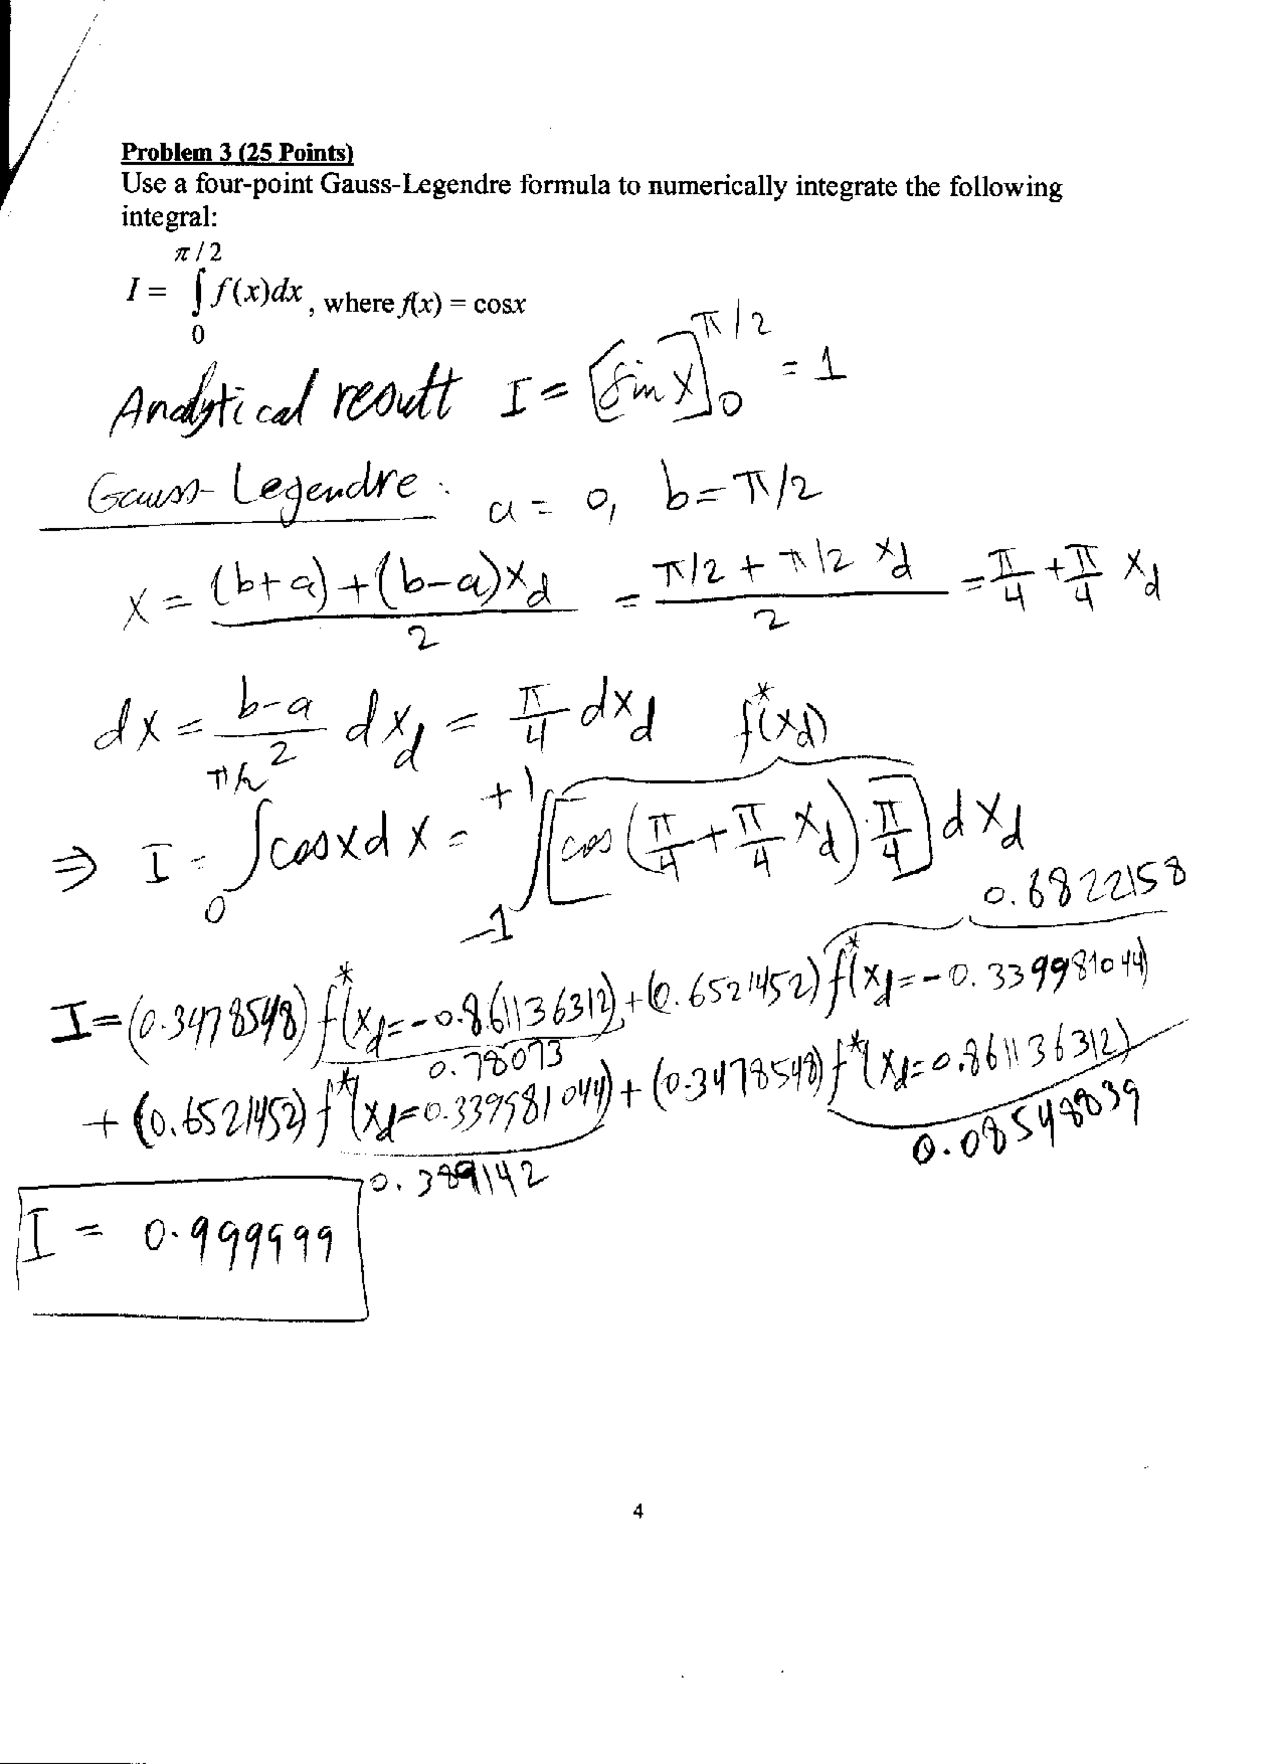 Problem 3 (25 Points)
Use a four-point Gauss-Legendre formula to numerically integrate the following
integral:
π/2
I = ∫ f(x)dx, where f(x) = cosx
0
Analytical result I = [sin x]₀^π/2 = 1
Gauss-Legendre: a = 0, b = π/2
x = ((b+a)+(b-a)x_d)/2 = (π/2 + π/2 x_d)/2 = π/4 + π/4 x_d
dx = (b-a)/2 dx_d = π/4 dx_d f*(x_d)
⇒ I = ∫₀^π/2 cosxdx = ∫₋₁^+1 [cos(π/4 + π/4 x_d)·π/4] dx_d
0.6822158
I=(0.3478548) f*(x_d=-0.861136312)+(0.6521452) f*(x_d=-0.339981044)
0.78073
+ (0.6521452) f*(x_d=0.339981044)+(0.3478548) f*(x_d=0.861136312)
0.389142 0.08548039
I = 0.999999
4